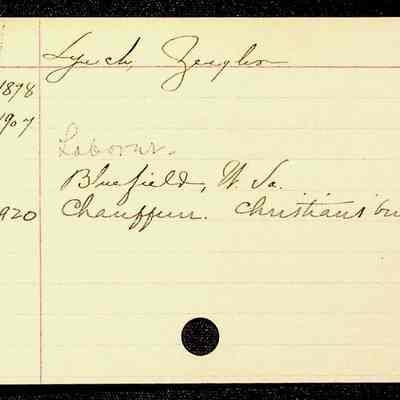 Lynch, Zeigler
1898
1907
Laborer.
Bluefield, W. Va.
920 Chauffeur. Christians bu